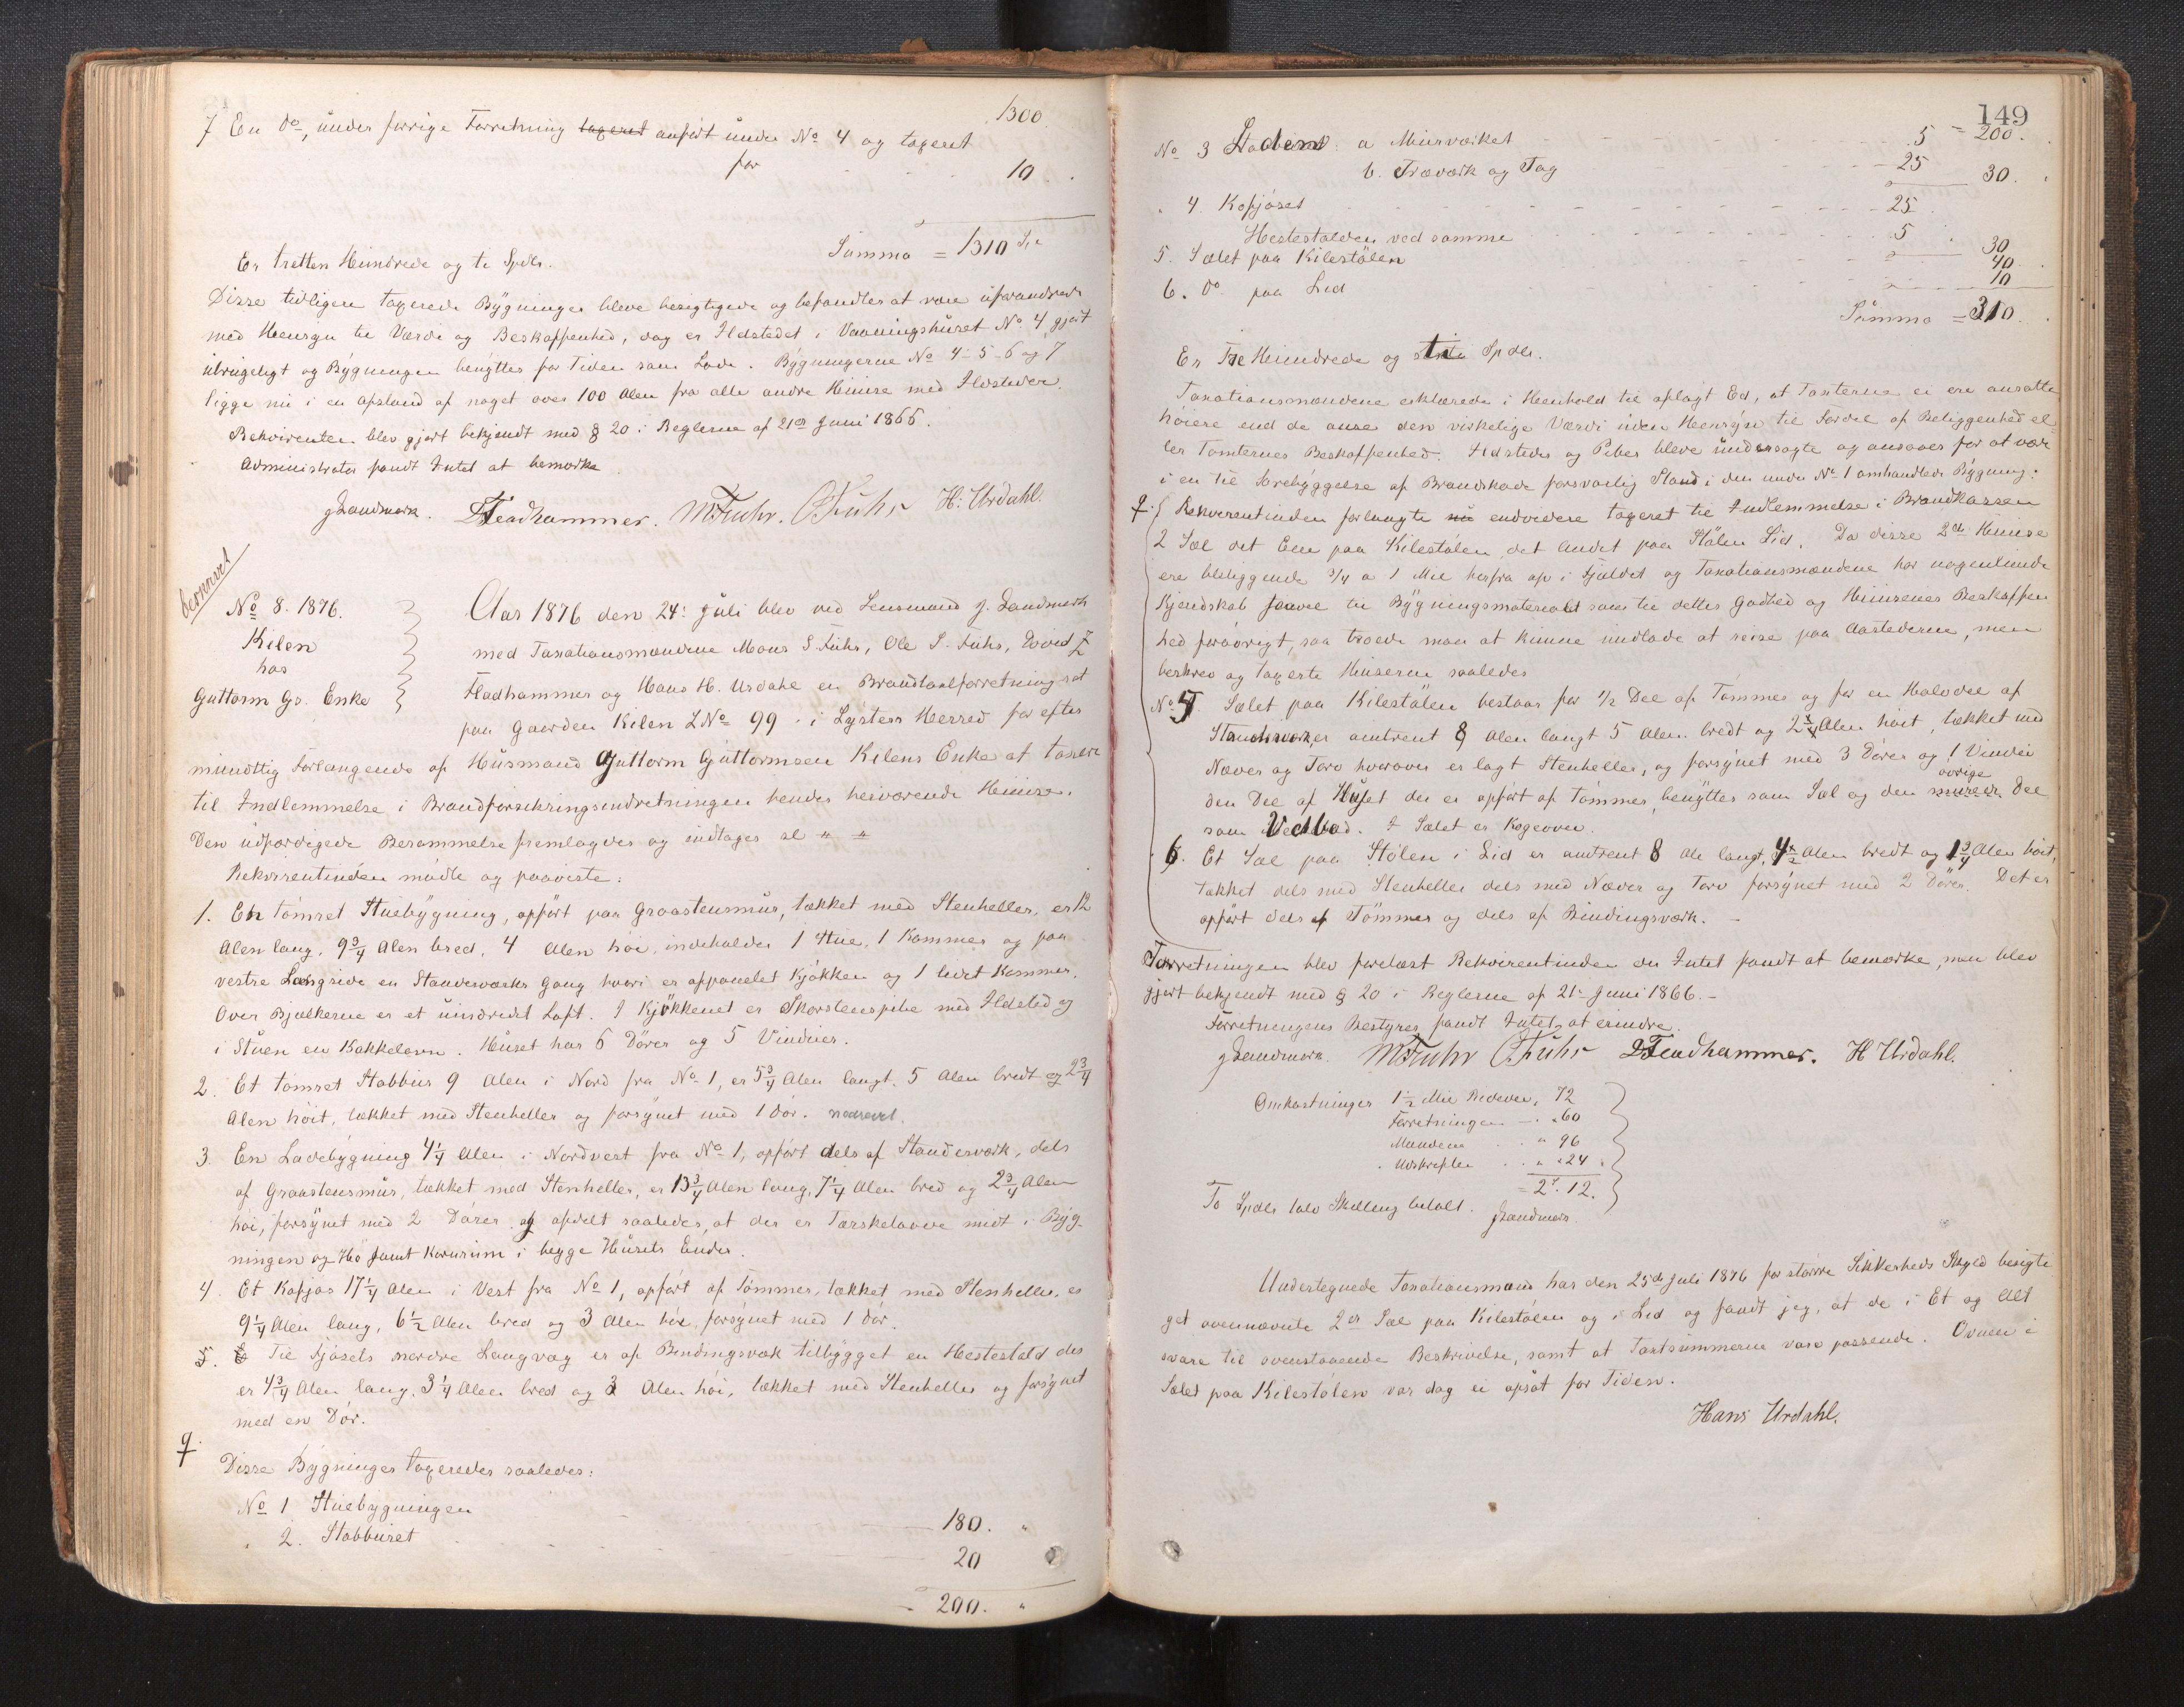 1300.
7 En do, under forrige Forretning taxeret anført under No 4 og taxeret
for 10.
Summa = 1310 Sp
Er tretten Hundrede og ti Spdlr.
Disse tidligere taxerede Bygninger bleve besigtigede og befandtes at være uforandrede
med Hensyn til Værdi og Beskaffenhed, dog er Ildstedet i Vaaningshuset No 4 gjort
ubrugeligt og Bygningen benyttes for Tiden som Lade. Bygningerne No 4-5-6 og 7
ligge nu i en Afstand af noget over 100 Alen fra alle andre Huuse med Ildsteder.
Rekvirenten blev gjort bekjendt med § 20 i Reglerne af 21de Juni 1866.
Administrator fandt Intet at bemærke
J Landmark. D Fladhammer. M Fuhr. O Fuhr H. Urdahl.
No 8. 1876.
Kilen
hos
Guttorm Gs. Enke
Aar 1876 den 24: Juli blev ved Lensmand J. Landmark
med Taxationsmændene Mons S. Fuhr, Ole S. Fuhr, David
Fladhammer og Hans H. Urdahl en Brandtaxtforretning sat
paa Gaarden Kilen LNo 99 i Lysters Herred for efter
mundtlig Forlangende af Huusmand Guttorm Guttormsen Kilens Enke at taxere
til Indlemmelse i Brandforsikringsindretningen hendes herværende Huuse.
Den udfærdigede Berammelse fremlagdes og indtages al " "
Rekvirentinden mødte og paaviste:
1. En tømret Stuebygning, opført paa Graasteensmur, tækket med Stenheller, er 12
Alen lang, 9¾ Alen bred, 4 Alen høi, indeholder 1 Stue, 1 Kammer og paa
vestre Langside en Standerværks Gang hvori er afpanelet Kjøkken og 1 lidet Kammer.
Over Bjælkerne er et uindredet Loft. I Kjøkkenet er Skorstenspibe med Ildsted og
i Stuen en Kakkelovn. Huset har 6 Dører og 5 Vinduer.
2. Et tømret Stabbur 9 Alen i Nord fra No 1, er 5¾ Alen langt, 5 Alen bredt og 2¾
Alen høit, tækket med Stenheller og forsynet med 1 Dør. nedrevet.
3. En Ladebygning 4¼ Alen i Nordvest fra No 1, opført dels af Standerværk, dels
af Graasteensmur, tækket med Stenheller, er 13¾ Alen lang, 7¼ Alen bred og 2¾ Alen
høi, forsynet med 2 Dører og afdelt saaledes, at der er Tærskelaave midt i Byg-
ningen og Hø samt Kornrum i begge Husets Ender.
4. Et Kofjøs 17¼ Alen i Vest fra No 1, opført af Tømmer, tækket med Stenheller, er
9¼ Alen lang, 6½ Alen bred og 3 Alen høi, forsynet med 1 Dør.
5. Til Fjøsets nordre Langvæg er af Bindingsværk tilbygget en Hestestald der
er 4¾ Alen lang, 3¼ Alen bred og 3 Alen høi, tækket med Stenheller og forsynet
med en Dør.
Disse Bygninger taxeredes saaledes:
No 1 Stuebygningen 180. "
" 2. Stabburet 20
200. "
149
200.
No 3 Laden: a Muurværket 5
b. Træværk og Tag 25 30.
" 4. Kofjøset 25
Hestestalden ved samme 5 30
5. Sælet paa Kilestølen 40
6. do paa Lid 10
Summa = 310.
Er Tre Hundrede og ti Spdlr.
Taxationsmændene erklærede i Henhold til aflagt Ed, at Taxterne ei ere ansatte
høiere end de anse den virkelige Værdi uden Hensyn til Fordel af Beliggenhed el-
ler Tomternes Beskaffenhed. Ildsteder og Piber bleve undersøgte og ansaaes for at være
i en til Forebyggelse af Brandskade forsvarlig Stand i den under No 1 omhandlede Bygning.
Rekvirentinden forlangte nu endvidere taxeret til Indlemmelse i Brandkassen
2 Sæl det Ene paa Kilestølen, det Andet paa Stølen Lid. Da disse 2de Huuse
ere beliggende ¾ a 1 Mil herfra op i Fjeldet og Taxationsmændene har nogenlunde
Kjendskab saavel til Bygningsmaterialet som til dettes Godhed og Huusenes Beskaffen
hed forøvrigt, saa troede man at kunne undlade at reise paa Aastederne, men
beskrev og taxerte Huserne saaledes
No 5 Sælet paa Kilestølen bestaar for ½ Del af Tømmer og for en Halvdel af
Standerværk, er omtrent 8 Alen langt 5 Alen bredt og 2¾ Alen høit, tækket med
Næver og Torv hvorover er lagt Stenheller, og forsynet med 3 Dører og 1 Vindu
den Del af Huset der er opført af Tømmer, benyttes som Sæl og den øvrige Del
som Vedbod. I Sælet er Kogeovn.
6. Et Sæl paa Stølen i Lid er omtrent 8 Al langt, 4½ Alen bredt og 1¾ Alen høit,
tækket dels med Stenheller dels med Næver og Torv forsynet med 2 Dører. Det er
opført dels af Tømmer og dels af Bindingsværk. –
Forretningen blev forelæst Rekvirentinden der Intet fandt at bemærke, men blev
gjort bekjendt med § 20 i Reglerne af 21de Juni 1866. –
Forretningens Bestyrer fandt Intet at erindre.
J Landmark. M Fuhr O Fuhr D Fladhammer. H Urdahl.
Omkostninger 1½ Mil 72
Forretningen – 60
Mændene " 96
Udskriften " 24
= 2. 12.
To Spdlr tolv Skilling betalt. J Landmark.
Undertegnede Taxationsmand har den 25de Juli 1876 for større Sikkerheds Skyld besigti
get ovennævnte 2de Sæl paa Kilestølen og i Lid og fandt jeg, at de i Et og Alt
svare til ovenstaaende Beskrivelse, samt at Taxtsummerne vare passende. Ovnen i
Sælet paa Kilestølen var dog ei opsat for Tiden.
Hans Urdahl.